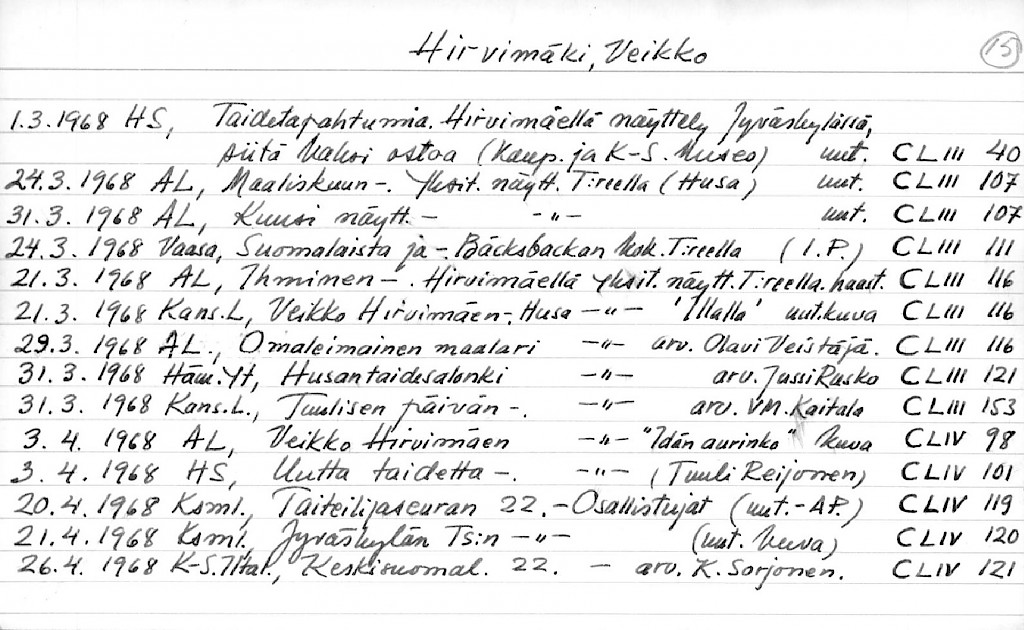 Hirvimäki, Veikko 15
1.3.1968 HS, Taidetapahtumia. Hirvimäellä näyttely Jyväskylässä,
siitä kaksi ostoa (Kaup. ja K-S. Museo) uut. CLIII 40
24.3.1968 AL, Maaliskuun -. Yksit. näytt. T:reella (Husa) uut. CLIII 107
31.3.1968 AL, Kuusi näytt. - -"- uut. CLIII 107
24.3.1968 Vaasa, Suomalaista ja -. Bäcksbackan kok. T:reella (I.P.) CLIII 111
21.3.1968 AL, Ihminen -. Hirvimäellä yksit. näytt. T:reella. haast. CLIII 116
21.3.1968 Kans.L, Veikko Hirvimäen -. Husa -"- 'Illalla' uut.kuva CLIII 116
29.3.1968 AL., Omaleimainen maalari -"- arv. Olavi Veistäjä. CLIII 116
31.3.1968 Häm.Yt, Husan taidesalonki -"- arv. Jussi Rusko CLIII 121
31.3.1968 Kans.L., Tuulisen päivän -. -"- arv. VM. Kaitala CLIII 153
3.4.1968 AL, Veikko Hirvimäen -"- "Idän aurinko" kuva CLIV 98
3.4.1968 HS, Uutta taidetta -. -"- (Tuuli Reijonen) CLIV 101
20.4.1968 Ksml., Taiteilijaseuran 22. - Osallistujat (uut. - AP.) CLIV 119
21.4.1968 Ksml. Jyväskylän Ts:n -"- (uut. kuva) CLIV 120
26.4.1968 K-S.Iltal., Keskisuomal. 22. - arv. K. Sorjonen. CLIV 121